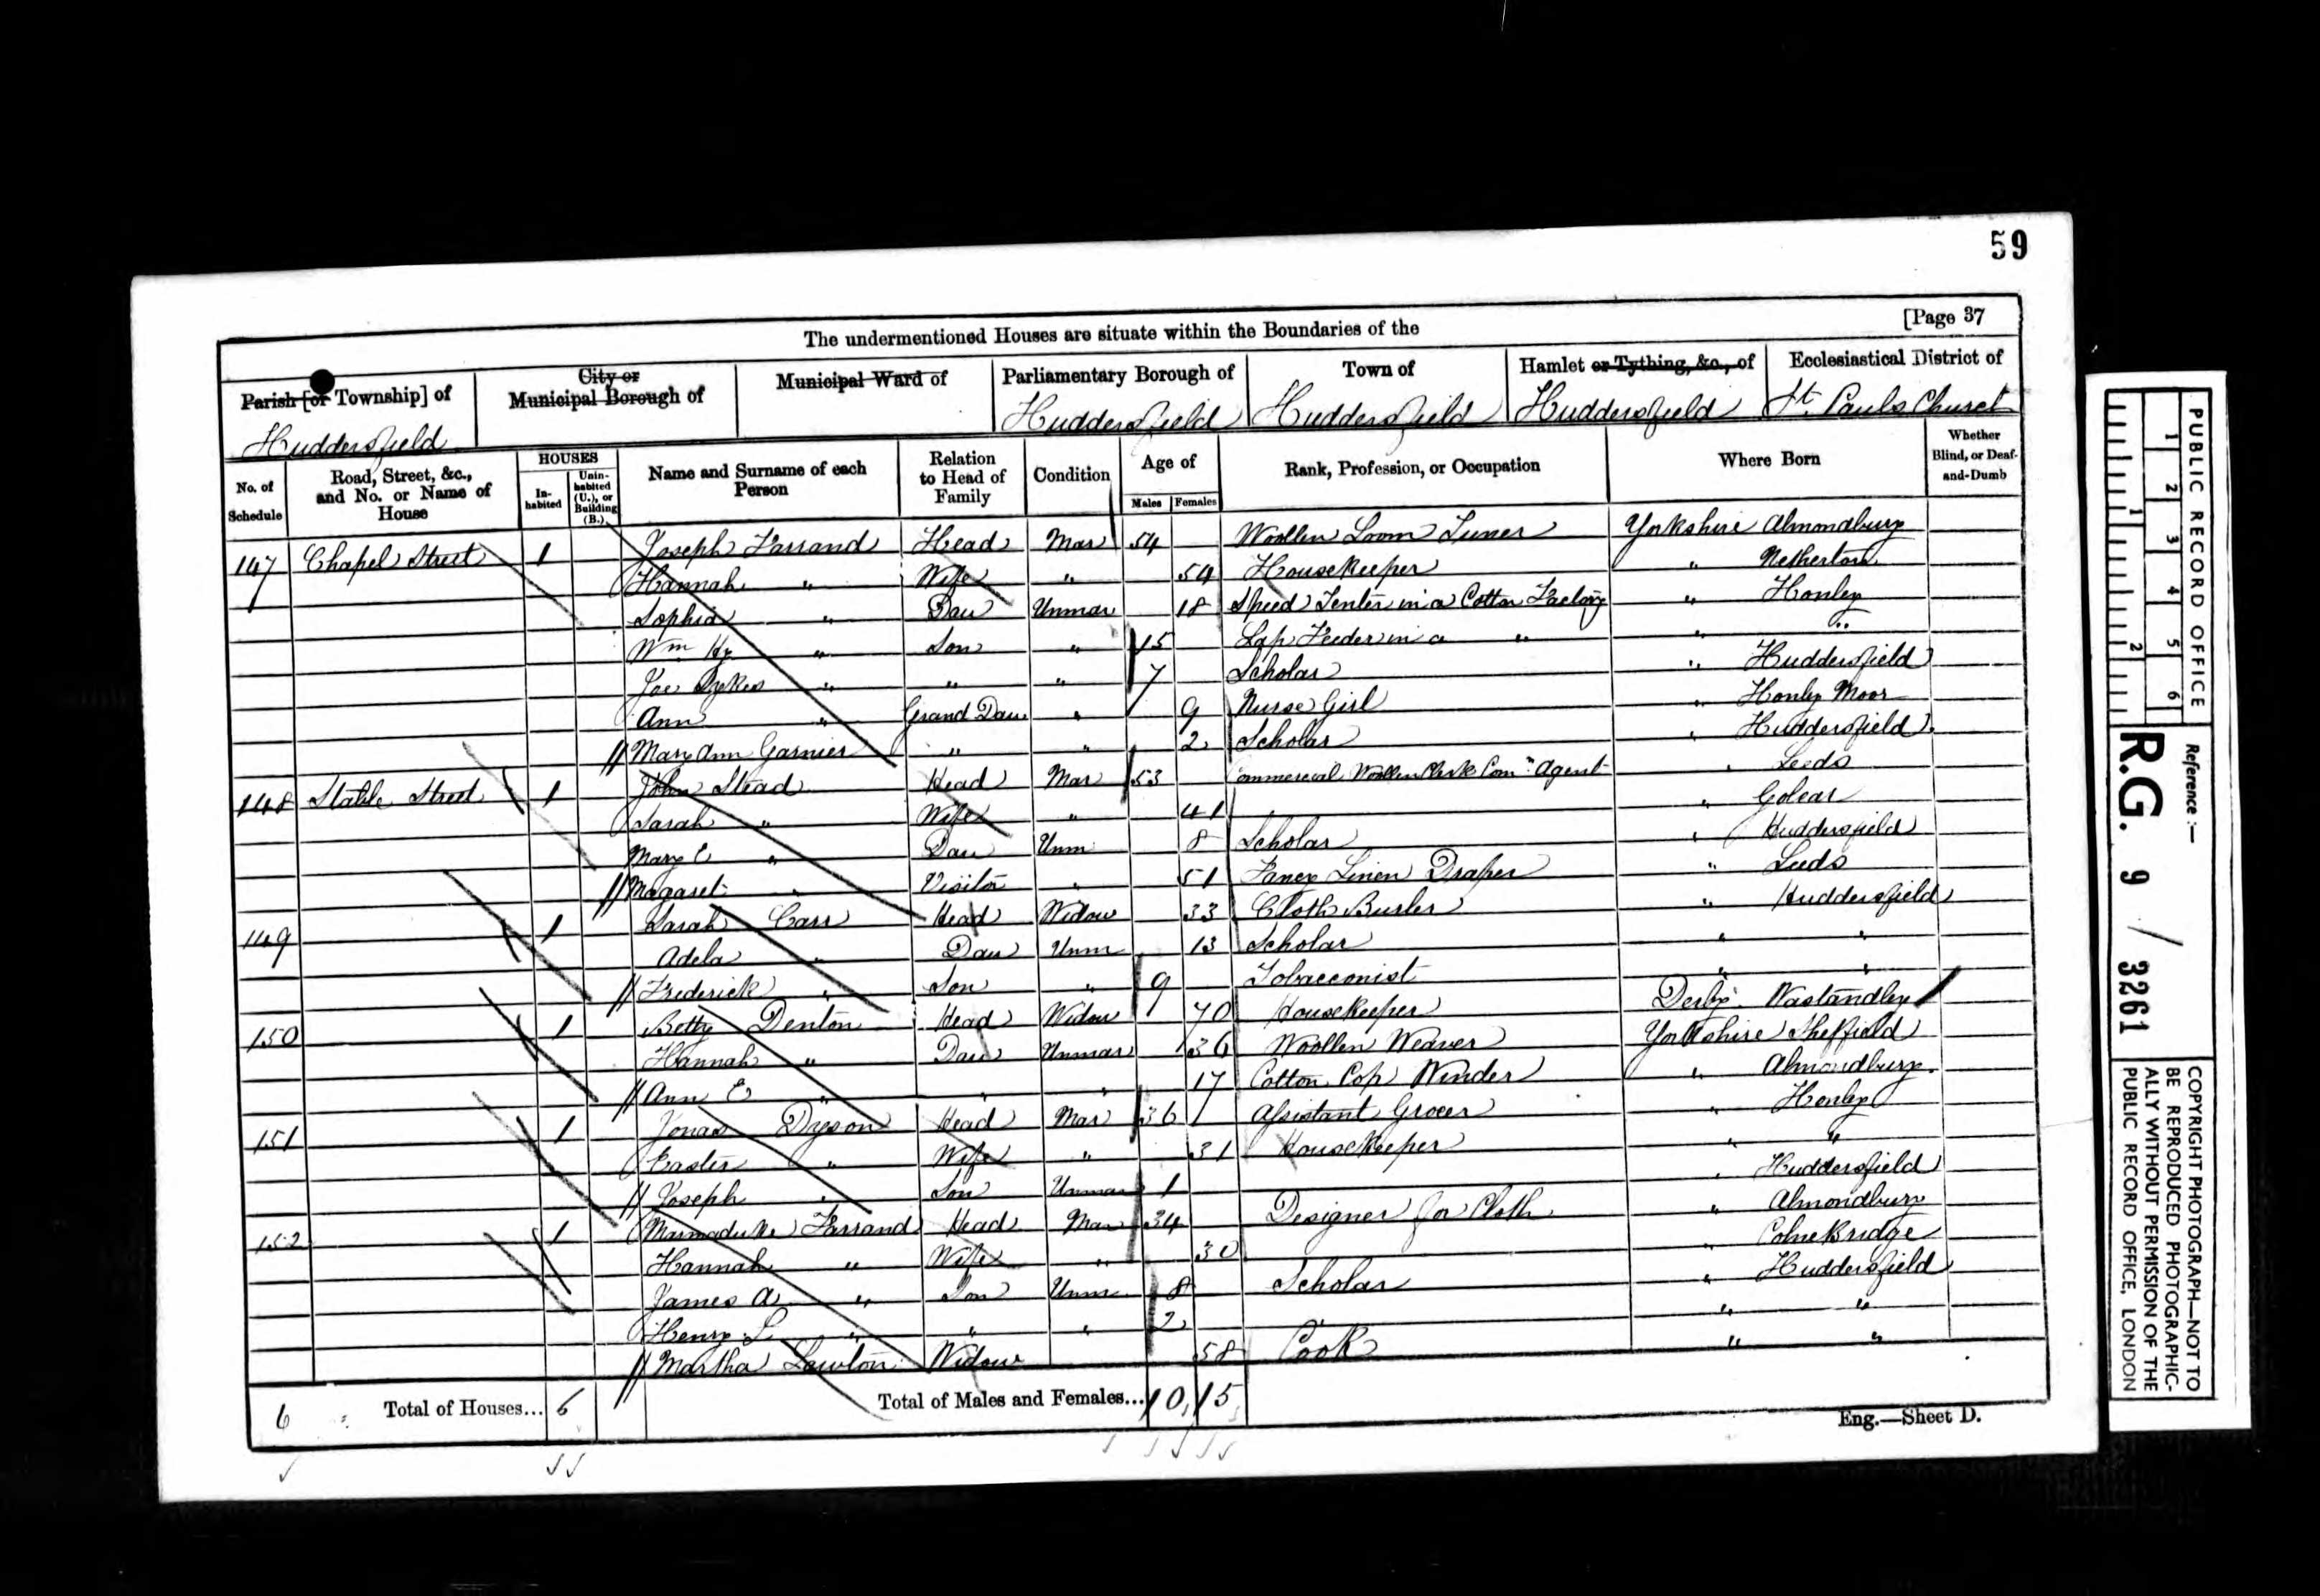 59
[Page 37
The undermentioned Houses are situate within the Boundaries of the
Parish [or Township] of City or Municipal Borough of Municipal Ward of Parliamentary Borough of Town of Hamlet or Tything, &c., of Ecclesiastical District of
Huddersfield Huddersfield Huddersfield Huddersfield St. Pauls Church
No. of Schedule Road, Street, &c., and No. or Name of House HOUSES In-habited Unin-habited (U.), or Building (B.) Name and Surname of each Person Relation to Head of Family Condition Age of Males Females Rank, Profession, or Occupation Where Born Whether Blind, or Deaf-and-Dumb
147 Chapel Street 1 Joseph Farrand Head Mar 54 Woollen Loom Tuner Yorkshire Almondbury
Hannah " Wife " 54 Housekeeper " Netherton
Sophia " Dau Unmar 18 Speed Tenter in a Cotton Factory " Honley
Wm Hy " Son " 15 Lap Feeder in a " " "
Joe Sykes " " " 7 Scholar " Huddersfield
Ann " Grand Dau " 9 Nurse Girl " Honley Moor
Mary Ann Garnier " " 2 Scholar " Huddersfield
148 Stable Street 1 John Stead Head Mar 53 Commercial Woollen Com Agent " Leeds
Sarah " Wife " 41 " Golcar
Mary E " Dau Unm 8 Scholar " Huddersfield
Magaret " Visitor " 51 Fancy Linen Draper " Leeds
149 1 Sarah Carr Head Widow 33 Cloth Burler " Huddersfield
Adela " Dau Unm 13 Scholar " "
Frederick " Son " 9 Tobacconist " "
150 1 Betty Denton Head Widow 70 Housekeeper Derby
Hannah " Dau Unmar 36 Woollen Weaver Yorkshire Sheffield
Ann E " " " 17 Cotton Cop Winder " Almondbury
151 1 Jonas Dyson Head Mar 36 Assistant Grocer " Honley
Easter " Wife " 31 Housekeeper " "
Joseph " Son Unmar 1 " Huddersfield
152 1 Marmaduke Farrand Head Mar 34 Designer for Cloth " Almondbury
Hannah " Wife " 30 " Colnebridge
James A " Son Unm 8 Scholar " Huddersfield
Henry L " " " 2 " "
Martha Lawton Widow 58 Cook " "
6 Total of Houses... 6 Total of Males and Females... 10 15
Eng.—Sheet D.
PUBLIC RECORD OFFICE
1 2 3 4 5 6
1 2
Reference:—
R.G. 9 / 3261
COPYRIGHT PHOTOGRAPH—NOT TO
BE REPRODUCED PHOTOGRAPHIC-
ALLY WITHOUT PERMISSION OF THE
PUBLIC RECORD OFFICE, LONDON